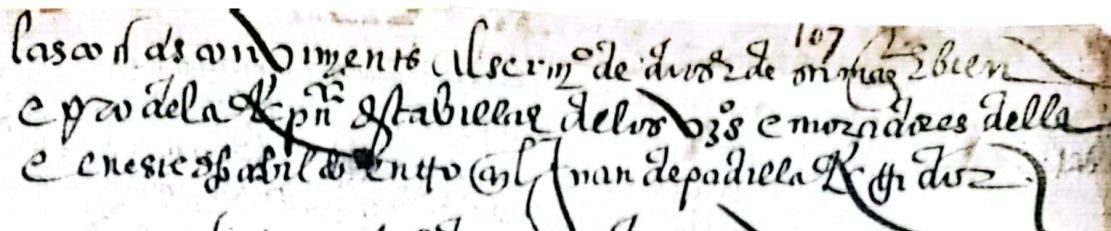 107
las cosas convinyentes al serviçio de dios e de su mag e bien
e pro de la Republica desta villa e de los vzºs e moradores della
e en este dho cabildo entro Juan de padilla Regidor